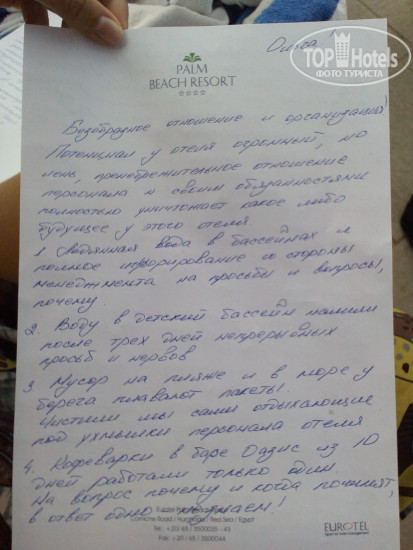 Ольга
TOPHotels
ФОТО ТУРИСТА
PALM
BEACH RESORT
Безобразное отношение и организация!
Потенциал у отеля огромный, но
лень, пренебрежительное отношение
персонала к своим обязанностями
полностью уничтожает какое либо
будущее у этого отеля
1. Ледянная вода в бассейнах и
полное игнорирование со стороны
менеджмента на просьбы и вопросы,
почему.
2. Воду в детский бассейн налили
после трех дней непрерывных
просьб и нервов
3. Мусор на пляже и в море у
берега плавают пакеты!
Чистили мы сами отдыхающие
под ухмылки персонала отеля
4. Кофеварки в баре Оазис из 10
дней работали только один
На вопрос почему и когда починят,
в ответ одно не знаем!
Corniche Road / Hurghada / Red Sea / Egypt
Tel.: +20/ 65 / 3500035 - 43
Fax: +20/ 65 / 3500044
EUROTEL